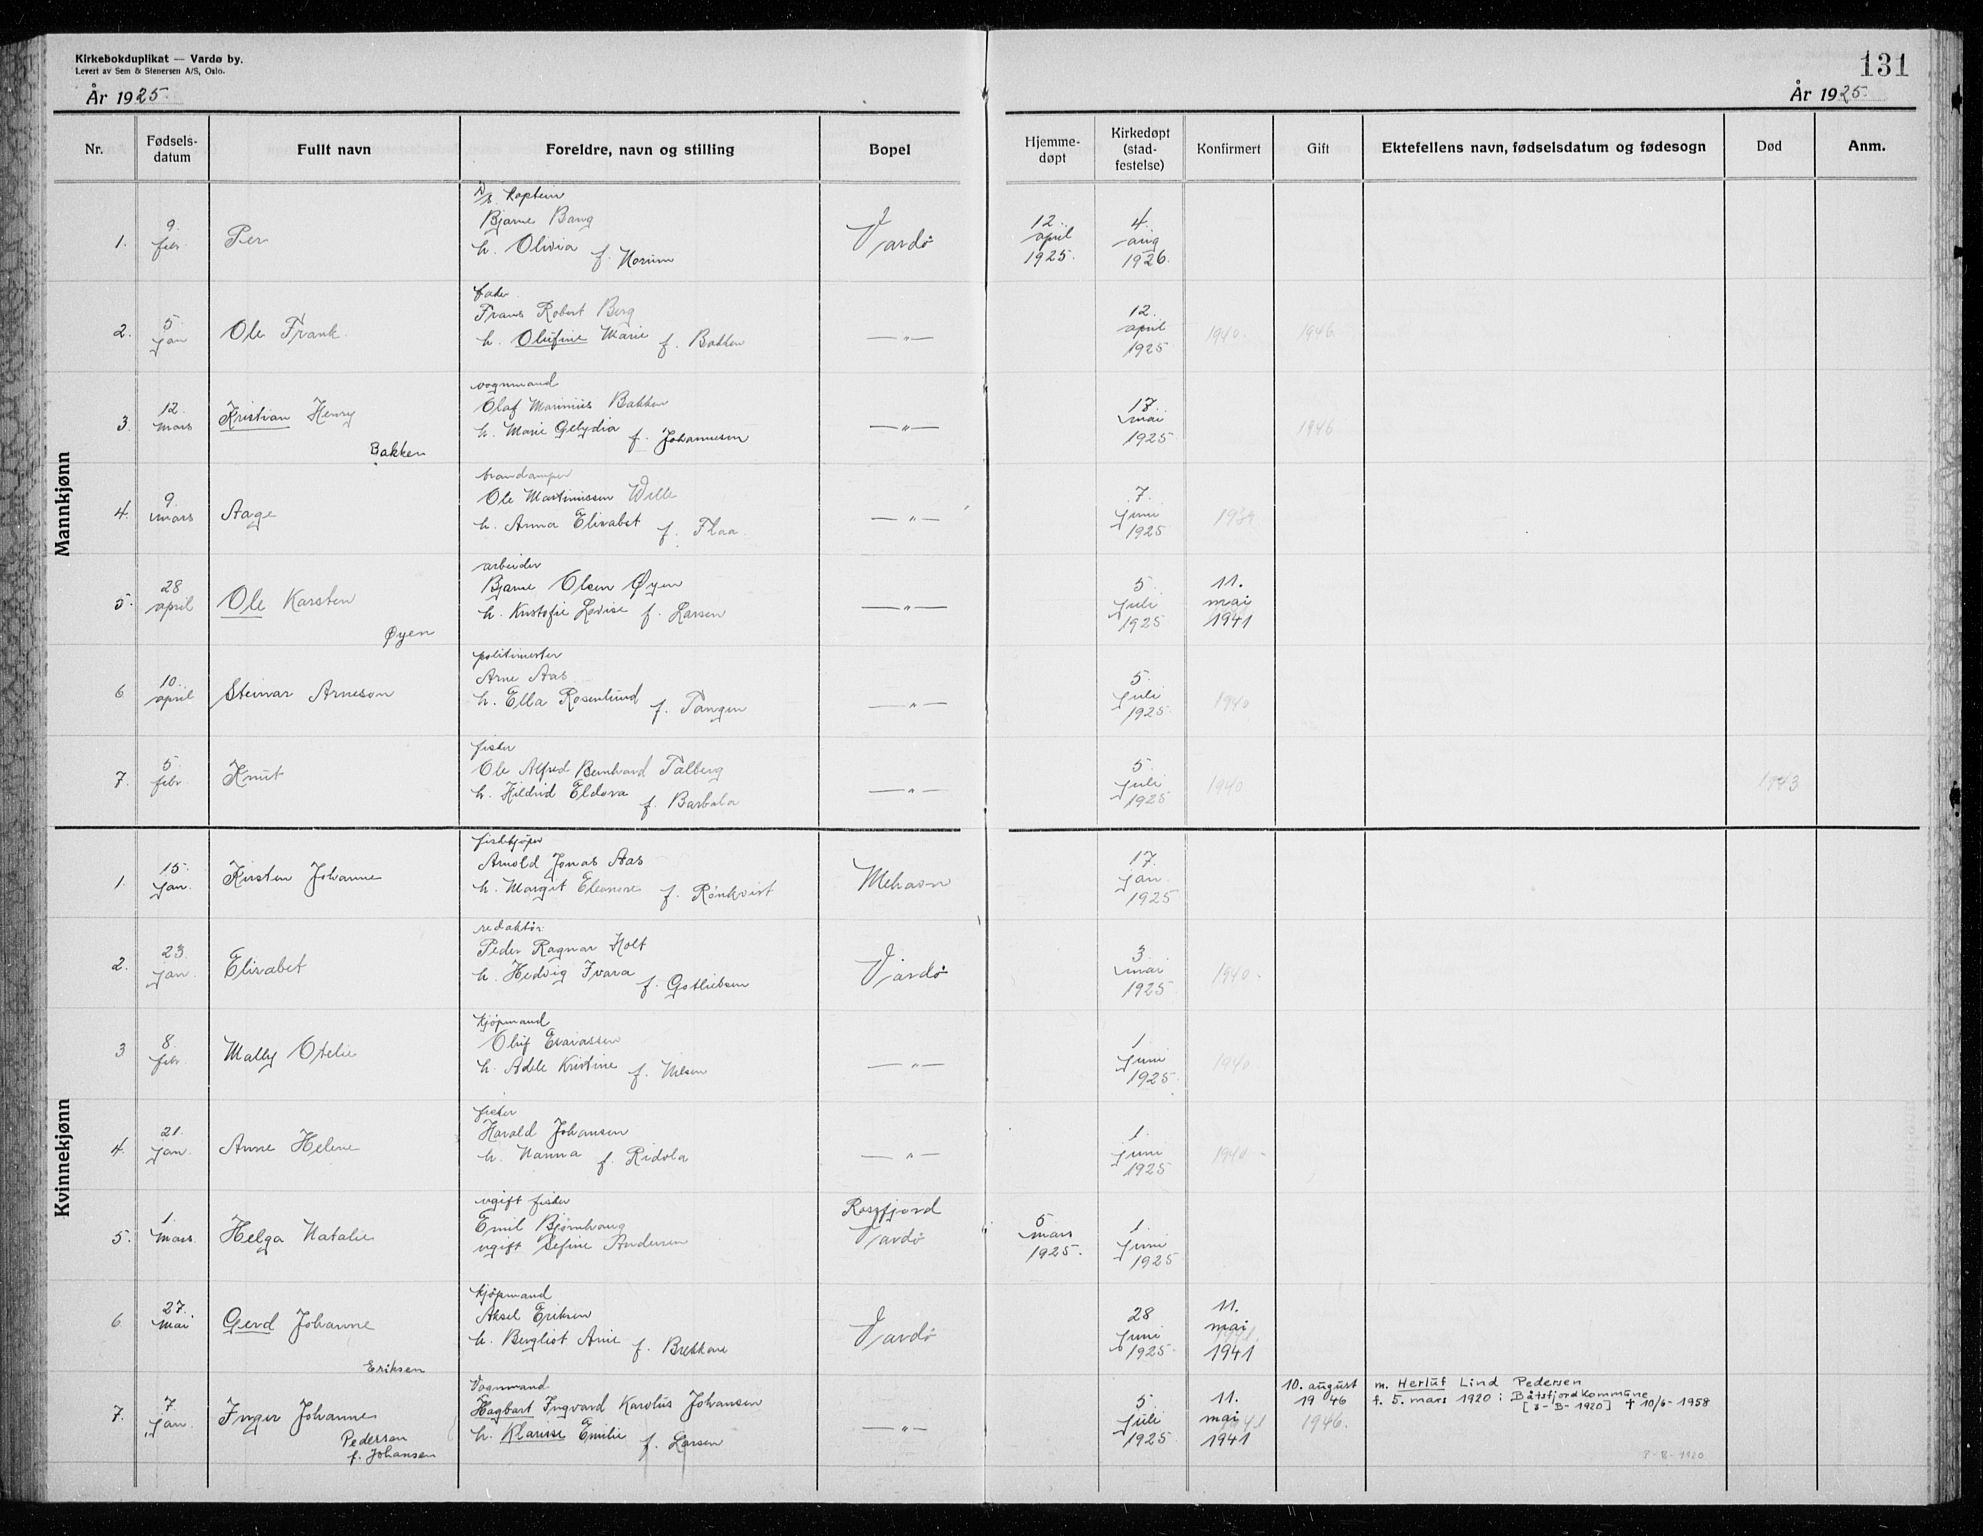 Kirkebokduplikat — Vardø by.
Levert av Sem & Stenersen A/S, Oslo.
År 1925.
131
År 1925.
Nr.
Fødsels-
datum
Fullt navn
Foreldre, navn og stilling
Bopel
Hjemme-
døpt
Kirkedøpt
(stad-
festelse)
Konfirmert
Gift
Ektefellens navn, fødselsdatum og fødesogn
Død
Anm.
Mannkjønn
1. 9. febr. Per
kaptein
Bjarne Bang
h. Olivia f. Norum
Vardø
12. april 1925.
4. aug 1926.
2. 5. jan Ole Frank.
Frans Robert Berg
h. Olufine Marie f. Bakken
— „ —
12. april 1925
1940.
1946.
3. 12. mars Kristian Henry
Bakken
vognmand
Olaf Marinius Bakken
h. Marie f. Johannesen
— „ —
17 mai 1925
1946
4. 9. mars Aage
Ole Martinussen Wille
h. Anna Elisabet f. Flaa
— „ —
7. juni 1925
1939
5. 28 april Ole Karsten
Øyen
arbeider
Bjarne Olsen Øyen
h. Kristofie Lovise f. Larsen
— „ —
5. juli 1925
11. mai 1941
6 10. april Steinar Arneson
politimester
Arne Aas.
h. Ella Rosenlund f. Tangen
— „ —
5. juli 1925
1940
7. 5. febr Knut
fisker
Ole Alfred Bernhard Talberg
h. Hildrid Eldora f. Barbala
— „ —
5. juli 1925
1940
1943
Kvinnekjønn
1. 15. jan. Kirsten Johanne
fiskekjøper
Arnold Jonas Aas
h. Margit Eleonore f. Rönkvist
Mehavn
17. jan. 1925
2. 23. jan. Elisabet
redaktør
Peder Ragnar Holt
h. Hedvig Ivara f. Gotliebsen
Vardø
3. mai 1925
1940.
3 8. febr. Mally Otelie
kjøpmand
Oluf Esaiassen
h. Adele Kristine f. Nilsen
— „ —
1. juni 1925
1940.
4. 21. jan. Anne Helene
fisker
Harald Johansen
h. Nanna f. Ridola
— „ —
1. juni 1925
1940.
5. 1. mars Helga Natalie
ugift fisker
Emil Bjørnhaug
ugift Sefine Andersen
Rossfjord
Vardø
5 mars 1925.
1. juni 1925
6 27. mai Gerd Johanne
Eriksen
kjøpmand
Aksel Eriksen
h. Bergliot Arnie f. Brekkene
Vardø
28 juni 1925
11. mai 1941
1941.
7. 7. jan. Inger Johanne
Pedersen
f. Johansen
Vognmand
Hagbart Ingvard Karolus Johansen
h. Klarisse Emilie f. Larsen
— „ —
5 juli 1925
11. mai 1941
1941
10. august
1946
1946.
m. Herluf Lind Pedersen
f. 5. mars 1920 : Båtsfjord kommune
[8-B-1920] † 10/6-1958
8-B-1920